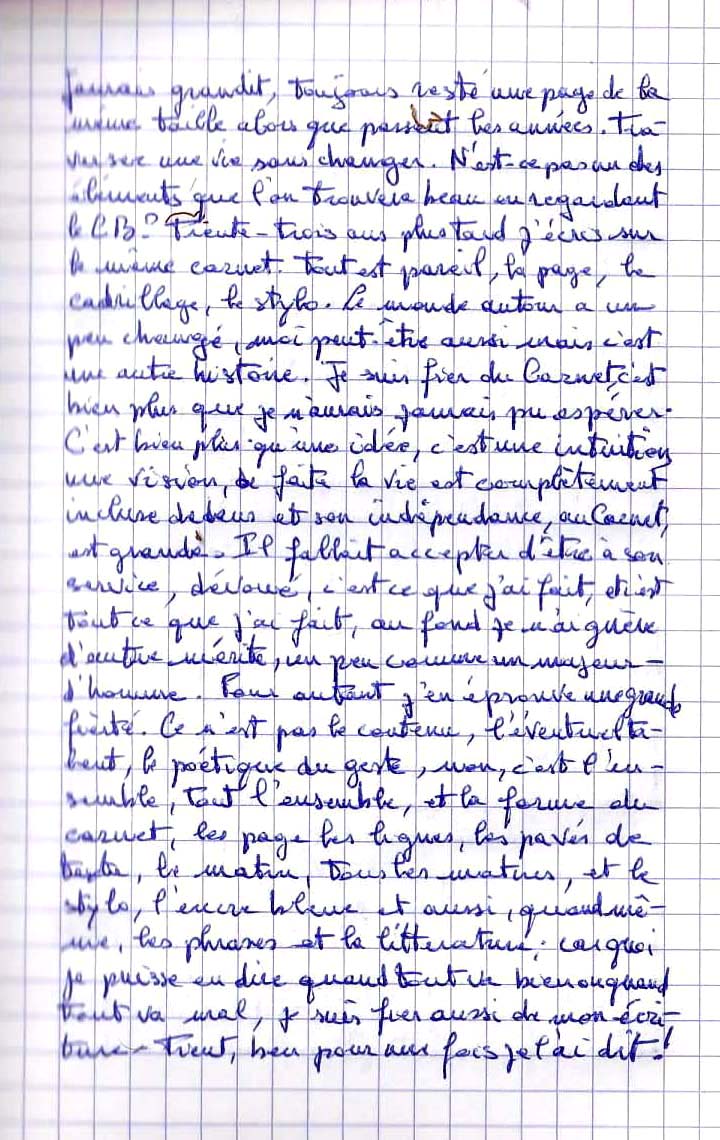 jamais grandit, toujours resté une page de la
même taille alors que passent les années. Tra-
verser une vie sans changer. N'est-ce pas un des
éléments que l'on trouvera beau en regardant
le CB? Trente-trois ans plus tard j'écris sur
le même carnet. Tout est pareil, la page, le
cadrillage, le stylo. Le monde autour a un
peu changé, moi peut-être aussi mais c'est
une autre histoire. Je suis fier du Carnet, c'est
bien plus que je n'aurais jamais pu espérer.
C'est bien plus qu'une idée, c'est une intuition
une vision, de faite la vie est complètement
incluse dedans et son indépendance, au Carnet,
est grande. Il fallait accepter d'être à son
service, dévoué, c'est ce que j'ai fait, et c'est
tout ce que j'ai fait, au fond je n'ai guère
d'autre mérite, un peu comme un majeur-
d'homme. Pour autant j'en éprouve une grande
fierté. Ce n'est pas le contenu, l'éventuel ta-
lent, le poétique du geste, non, c'est l'en-
semble, tout l'ensemble, et la forme du
carnet, les page les lignes, les pavés de
texte, le matin, tous les matins, et le
stylo, l'encre bleue et aussi, quand mê-
me, les phrases et la littérature; car quoi
je puisse en dire quand tout va bien ou quand
tout va mal, je suis fier aussi de mon écri-
ture. Tient, ben pour une fois je l'ai dit!